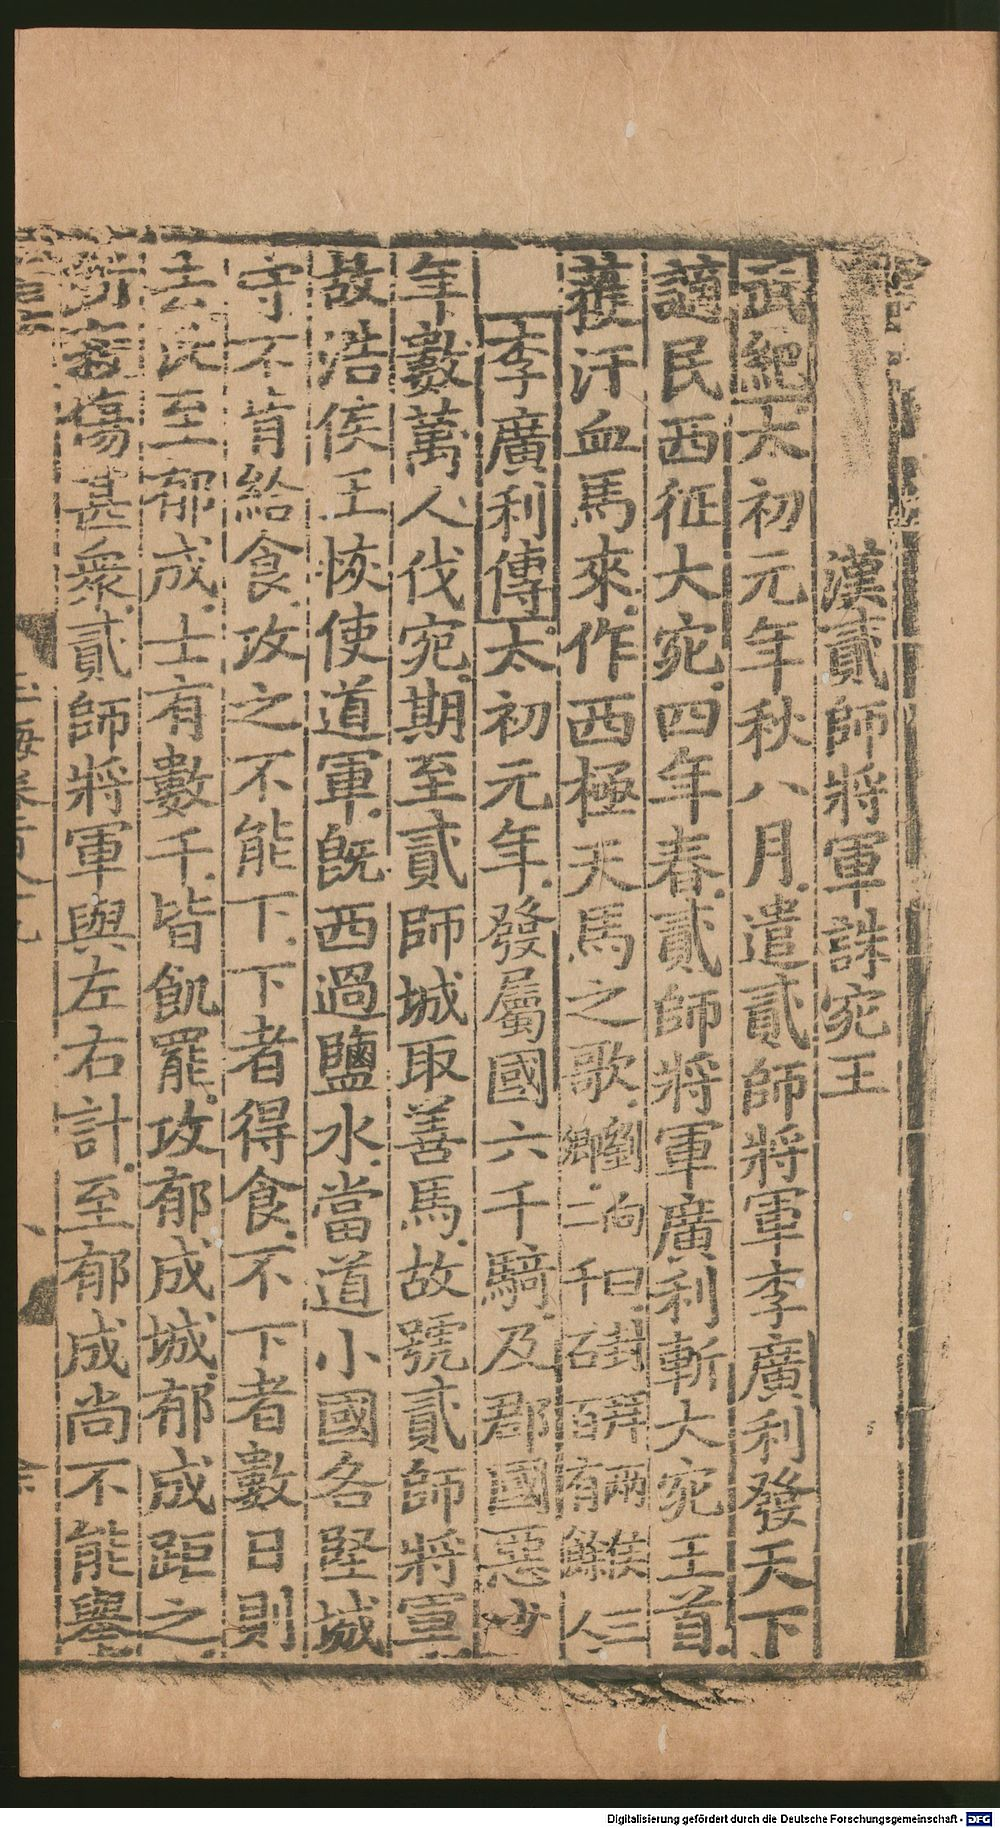 漢貳師將軍誅宛王
武紀太初元年秋八月遣貳師將軍李廣利發天下
謫民西征大宛四年春貳師將軍廣利斬大宛王首
獲汗血馬來作西極天馬之歌劉向曰 三
李廣利傳太初元年發屬國六千騎及郡國惡少
年數萬人伐宛期至貳師城取善馬故號貳師將軍
故浩侯王恢使道軍旣西過鹽水當道小國各堅城
守不肯給食攻之不能下下者得食不下者數日則
去比至郁成士有數千皆飢罷攻郁成城郁成距之
所殺傷甚衆貳師將軍與左右計至郁成尚不能舉
Digitalisierung gefördert durch die Deutsche Forschungsgemeinschaft - DFG